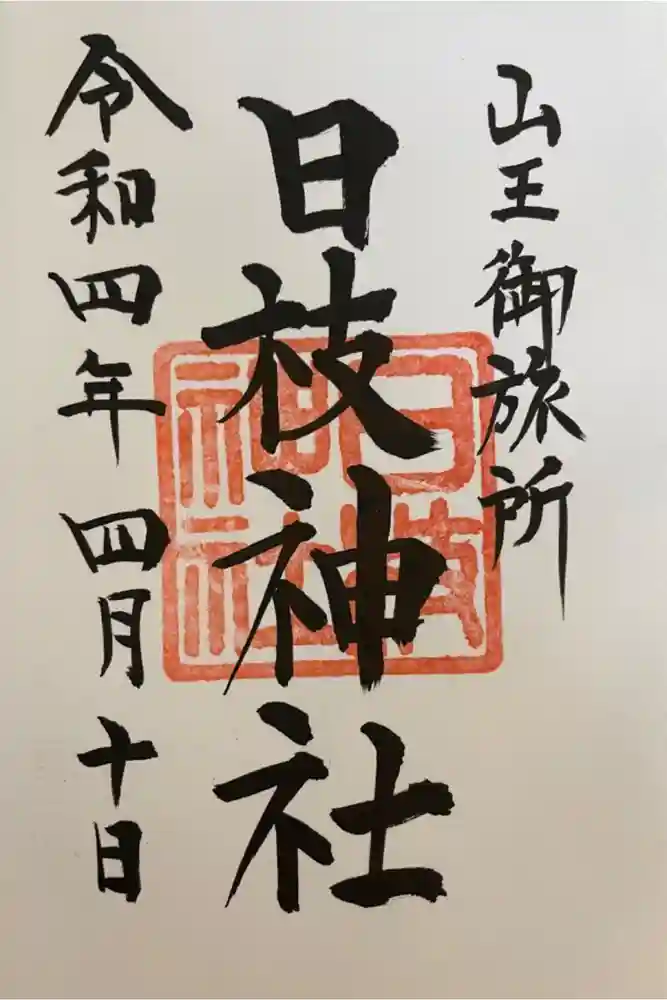 山王御旅所
日枝神社
令和四年四月十日
日枝
神社